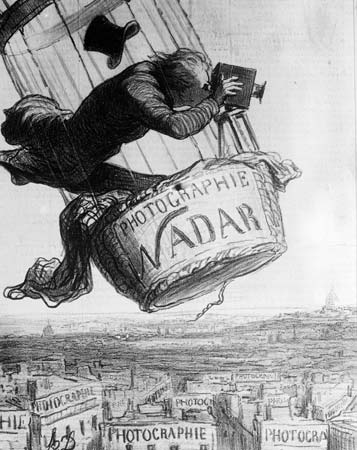 PHOTOGRAPHIE
NADAR
PHOTOGRAPHIE
PHOTOG
PHOTO
HIE
PHOTOGRAPHIE
PHOTOGRA